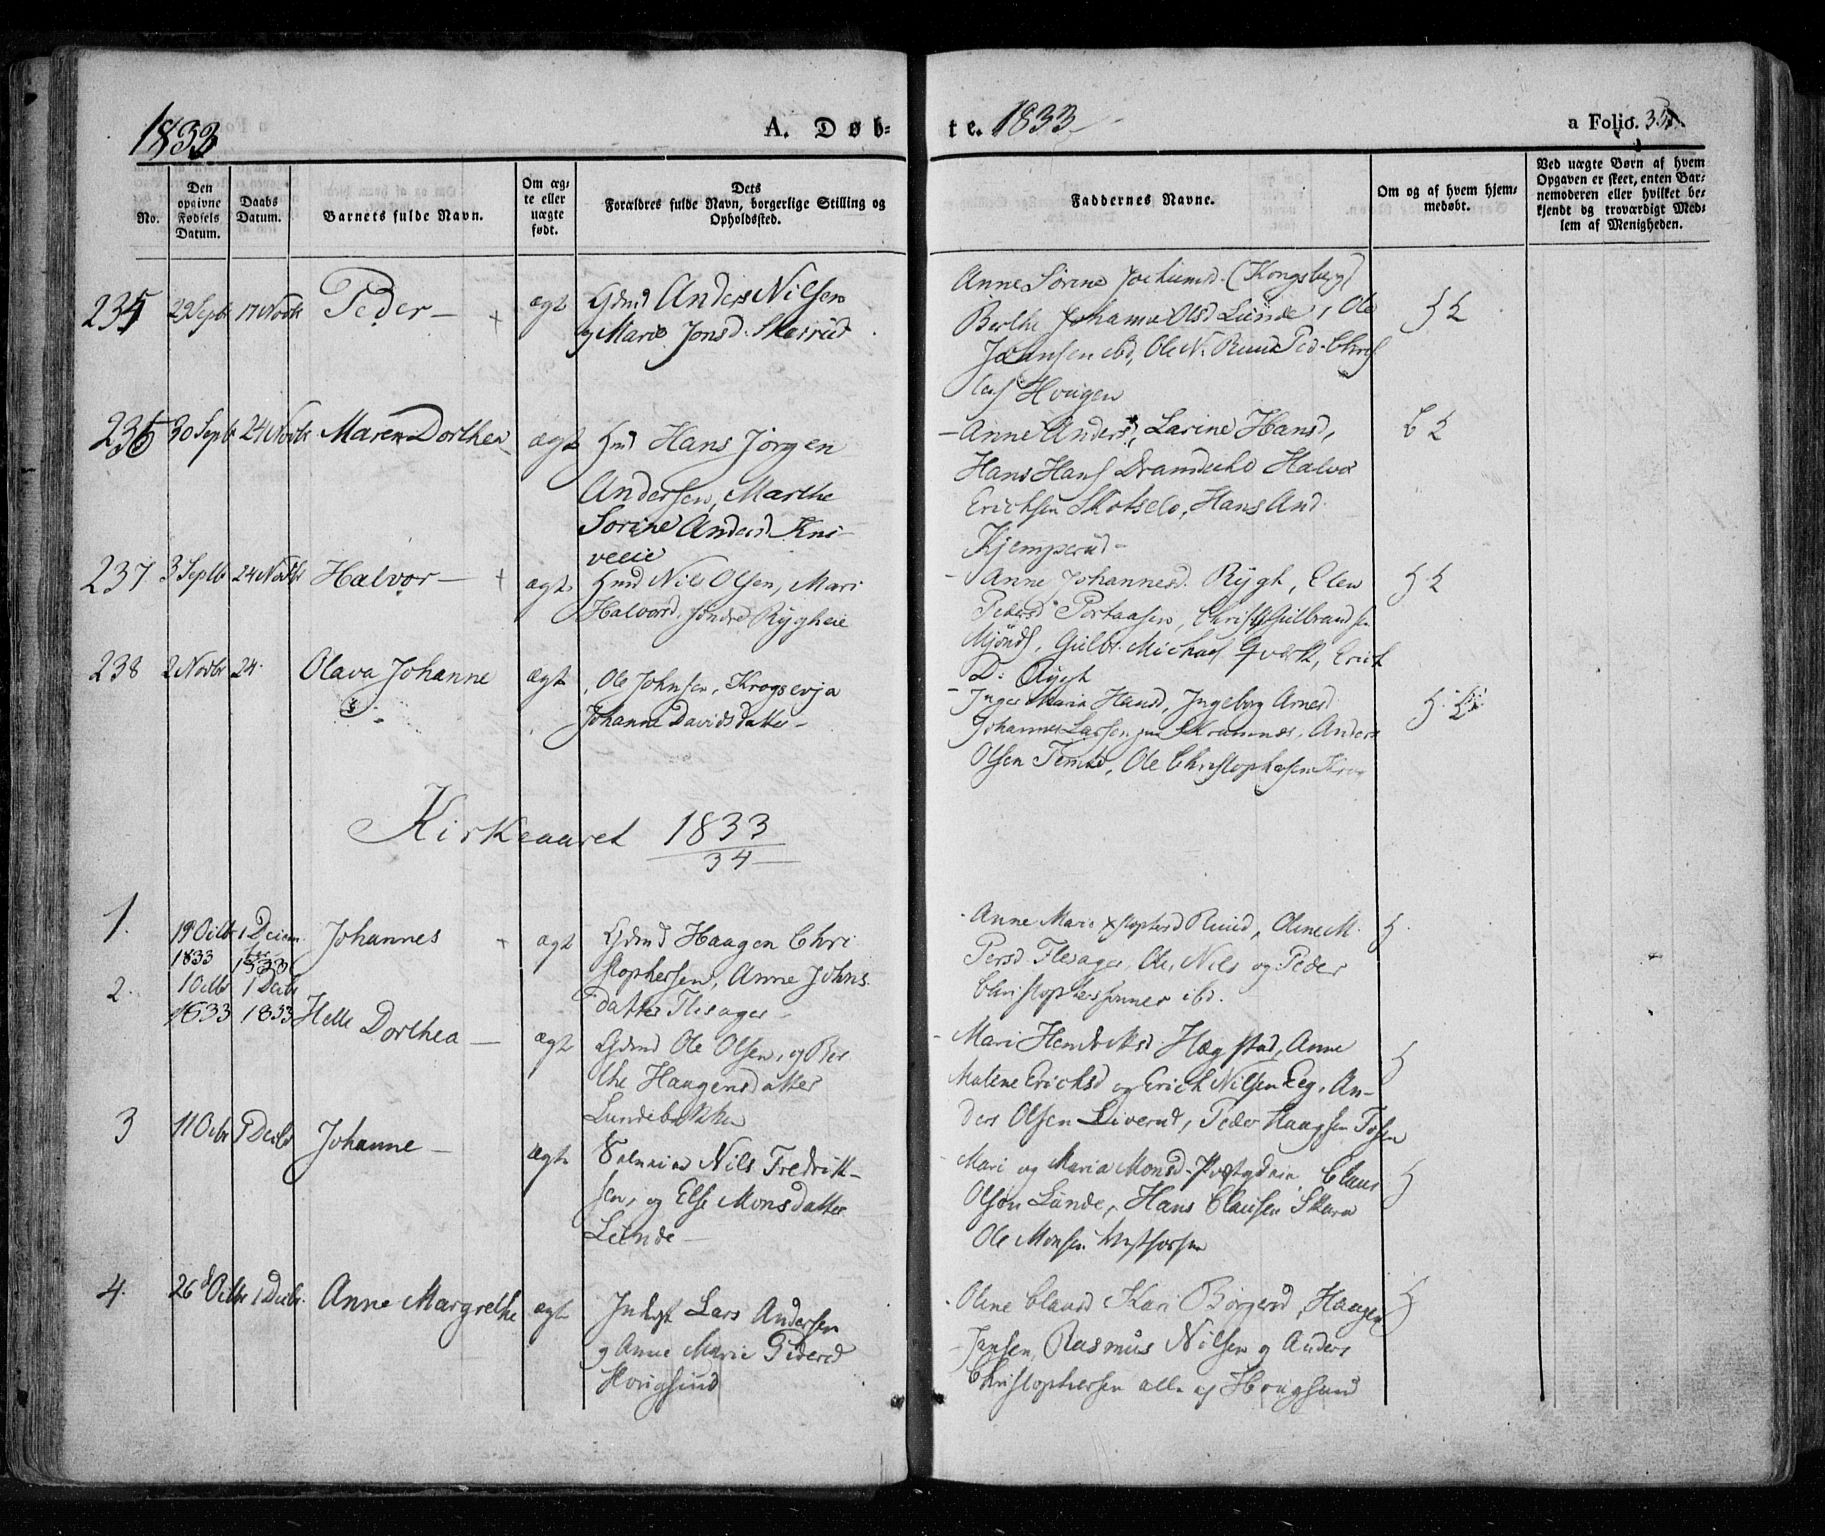 1833 A. Døb-
te. 1833 a Folio. 35
No.
Den opgivne Fødsels Datum.
Daabs Datum.
Barnets fulde Navn.
Om ægte eller uægte født.
Dets Forældres fulde Navn, borgerlige Stilling og Opholdssted.
Faddernes Navne.
Om og af hvem hjemmedøbt.
Ved uægte Børn af hvem Opgaven er skeet, enten Barnemoderen eller hvilket bekjendt og troværdigt Medlem af Menigheden.
235 29 Septb 17 Novbr Peder - + ægt Gdmd Anders Nilsen
og Marie Jonsd.
Anne Sørine Jochumsd. (Kongsberg)
Berthe Johanne Olsd Lunde, Ole
Johnsen ibd, Ole N. Ruud Ped. Chris
Hougen
236 30 Septb 24 Novbr Maren Dorthea ægt Hmd Hans Jørgen
Andersen, Marthe
Sorine Andersd Kni-
veeie
- Anne Andersd, Larine Hansd,
Hans Hans Halvor
Ericksen Skotselv, Hans And.
Kjemperud -
237 3 Septb 24 Novbr Halvor - + ægt Hmd Nils Olsen, Mari
Halvorsd. søndre Rygheie
- Anne Johannesd. Rygh, Elen
Pedersd Portaasen, Christ Gulbrandsen
Mjønd, Gulbr. Michael Erick
D. Rygh
238 2 Novbr 24. Olava Johanne ægt Ole Johnsen, Krogsevja
Johanne Davidsdatter -
- Inger Maria Hansd, Ingeborg Arnesd
Johannes Larsen Anders
Olsen Temte, Ole Christophersen
Kirkeaaret 1833
34
1. 19 Octbr 1 Decem
1833 1833
Johannes + ægt Gdmd Haagen Chri
stophersen, Anne Johns
datter Flesager -
Anne Marie Xstophersd Ruud, Oline M.
Persd Flesager, Ole, Nils og Peder
Christophersønner ibd.
2. 1 Octbr 1 Decbr
1833 1833
Helle Dorthea - ægt Gdmd Ole Olsen, og Ber
the Haagensdatter
Lundebakken
- Mari Hendriksd. Hægstad, Anne
Malene Ericksd og Erich Nilsen Eeg, An-
ders Olsen Liverud, Peder Haagsen
3 11 Octbr 1 Decbr Johanne - ægt Nils Fredrik-
sen, og Else Monsdatter
Lunde -
- Mari og Maria Monsd. Claus
Olsen Lunde, Hans Clausen Skara
Ole Monsen Vestfossen
4. 26 Octbr 1 Decbr. Anne Margrethe ægt Indgt Lars Andersen
og Anne Marie Pedersd
Hougsund
Oline Clausd Kari Børgersd, Haagen
Jensen, Rasmus Nilsen og Anders
Christophersen alle af Hougsund